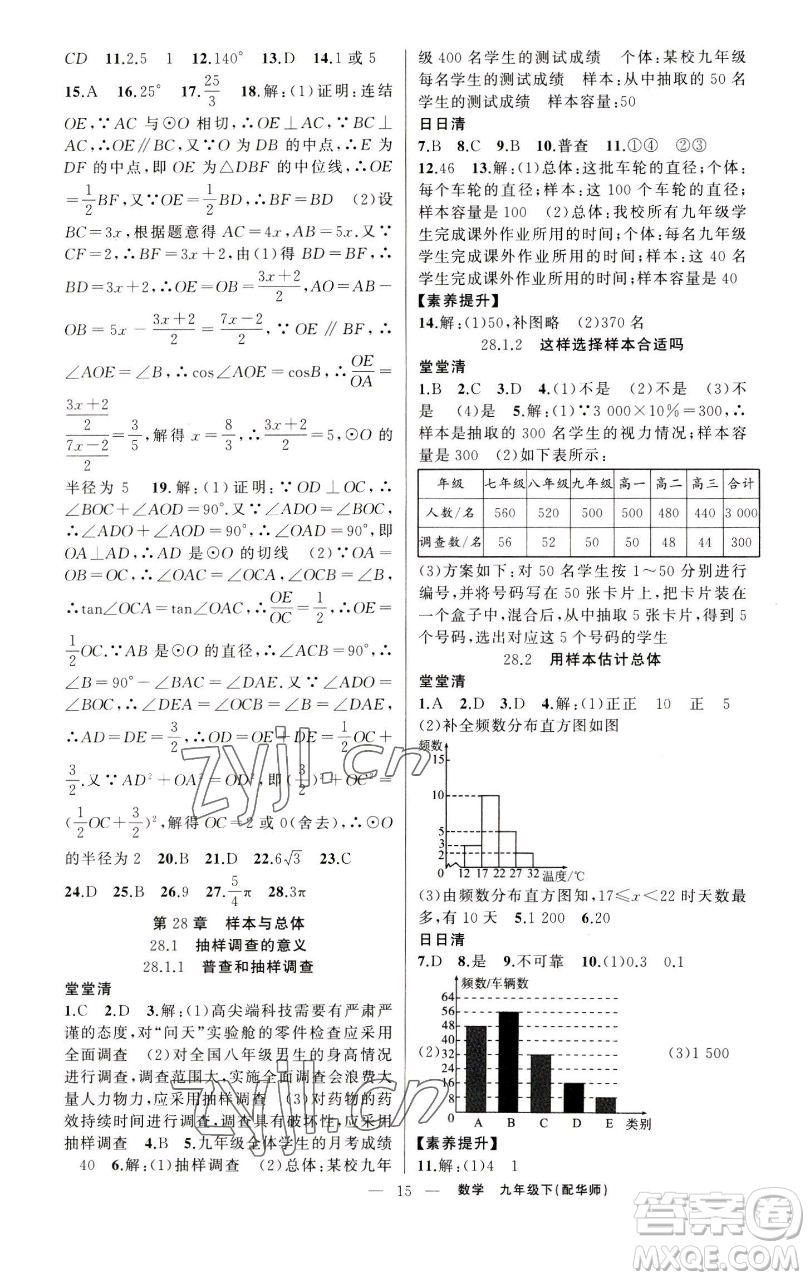 CD　11.2.5　1　12.140°　13.D　14.1或5
15.A　16.25°　17.25/3　18.解:(1)证明:连结
OE,∵AC与⊙O相切,∴OE⊥AC,∵BC⊥
AC,∴OE∥BC,又∵O为DB的中点,∴E为
DF的中点,即OE为△DBF的中位线,∴OE
=1/2BF,又∵OE=1/2BD,∴BF=BD　(2)设
BC=3x,根据题意得AC=4x,AB=5x.又∵
CF=2,∴BF=3x+2,由(1)得BD=BF,∴
BD=3x+2,∴OE=OB=(3x+2)/2,AO=AB-
OB=5x-(3x+2)/2=(7x-2)/2,∵OE∥BF,∴
∠AOE=∠B,∴cos∠AOE=cosB,∴OE/OA=
((3x+2)/2)/((7x-2)/2)=3/5,解得x=8/3,∴(3x+2)/2=5,⊙O的
半径为5　19.解:(1)证明:∵OD⊥OC,∴
∠BOC+∠AOD=90°.又∵∠ADO=∠BOC,
∴∠ADO+∠AOD=90°,∴∠OAD=90°,即
OA⊥AD,∴AD是⊙O的切线　(2)∵OA=
OC,∴∠OAC=∠OCA=∠ACO=∠OCE,
∴tan∠OCA=tan∠OAC,∴OE/OC=1/2,∴OE=
1/2OC.∵AB是⊙O的直径,∴∠ACB=90°,∴
∠B=90°-∠OAC=90°-∠ACO.又∵∠ADO=
∠BOC,∴∠DEA=∠OEC=∠B=∠DAE,
∴AD=DE=3/2,∴OD=OE+DE=1/2OC+
3/2.又∵AD²+OA²=OD²,即(3/2)²+OC²=
(1/2OC+3/2)²,解得OC=2或0(舍去),∴⊙O
的半径为2　20.B　21.D　22.6√3　23.C
24.D　25.B　26.9　27.5/4π　28.3π
第28章　样本与总体
28.1　抽样调查的意义
28.1.1　普查和抽样调查
堂堂清
1.C　2.D　3.解:(1)高尖端科技需要有严肃严
谨的态度,对“问天”实验舱的零件检查应采用
全面调查　(2)对全国八年级男生的身高情况
进行调查,调查范围大,实施全面调查会浪费大
量人力物力,应采用抽样调查　(3)对药物的药
效持续时间进行调查,调查具有破坏性,应采用
抽样调查　4.B　5.九年级全体学生的月考成绩
40　6.解:(1)抽样调查　(2)总体:某校九年
级400名学生的测试成绩　个体:某校九年级
每名学生的测试成绩　样本:从中抽取的50名
学生的测试成绩　样本容量:50
日日清
7.B　8.C　9.B　10.普查　11.①④　②③
12.46　13.解:(1)总体:这批车轮的直径;个体:
每个车轮的直径;样本:这100个车轮的直径;
样本容量是100　(2)总体:我校所有九年级学
生完成课外作业所用的时间;个体:每名九年级
学生完成课外作业所用的时间;样本:这40名
学生完成课外作业所用的时间;样本容量是40
【素养提升】
14.解:(1)50,补图略　(2)370名
28.1.2　这样选择样本合适吗
堂堂清
1.B　2.C　3.D　4.(1)不是　(2)不是　(3)不
是　(4)是　5.解:(1)∵3 000×10%=300,∴
样本是抽取的300名学生的视力情况;样本容
量是300　(2)如下表所示:
年级　七年级　八年级　九年级　高一　高二　高三　合计
人数/名　560　520　500　500　480　440　3 000
调查数/名　56　52　50　50　48　44　300
(3)方案如下:对50名学生按1～50分别进行
编号,并将号码写在50张卡片上,把卡片装在
一个盒子中,混合后,从中抽取5张卡片,得到5
个号码,选出对应这5个号码的学生
28.2　用样本估计总体
堂堂清
1.A　2.D　3.D　4.解:(1)正正　10　正　5
(2)补全频数分布直方图如图
频数
15
10
5
3
2
0　12　17　22　27　32　温度/℃
(3)由频数分布直方图知,17≤x<22时天数最
多,有10天　5.1 200　6.20
日日清
7.D　8.是　9.不可靠　10.(1)0.3　0.1
(2)　(3)1 500
频数/车辆数
64
56
48
40
32
24
16
8
0　A　B　C　D　E　类别
【素养提升】
11.解:(1)4　1
— 15 —　数学　九年级下(配华师)
zyjl.cn
答案圈
MXQE.COM